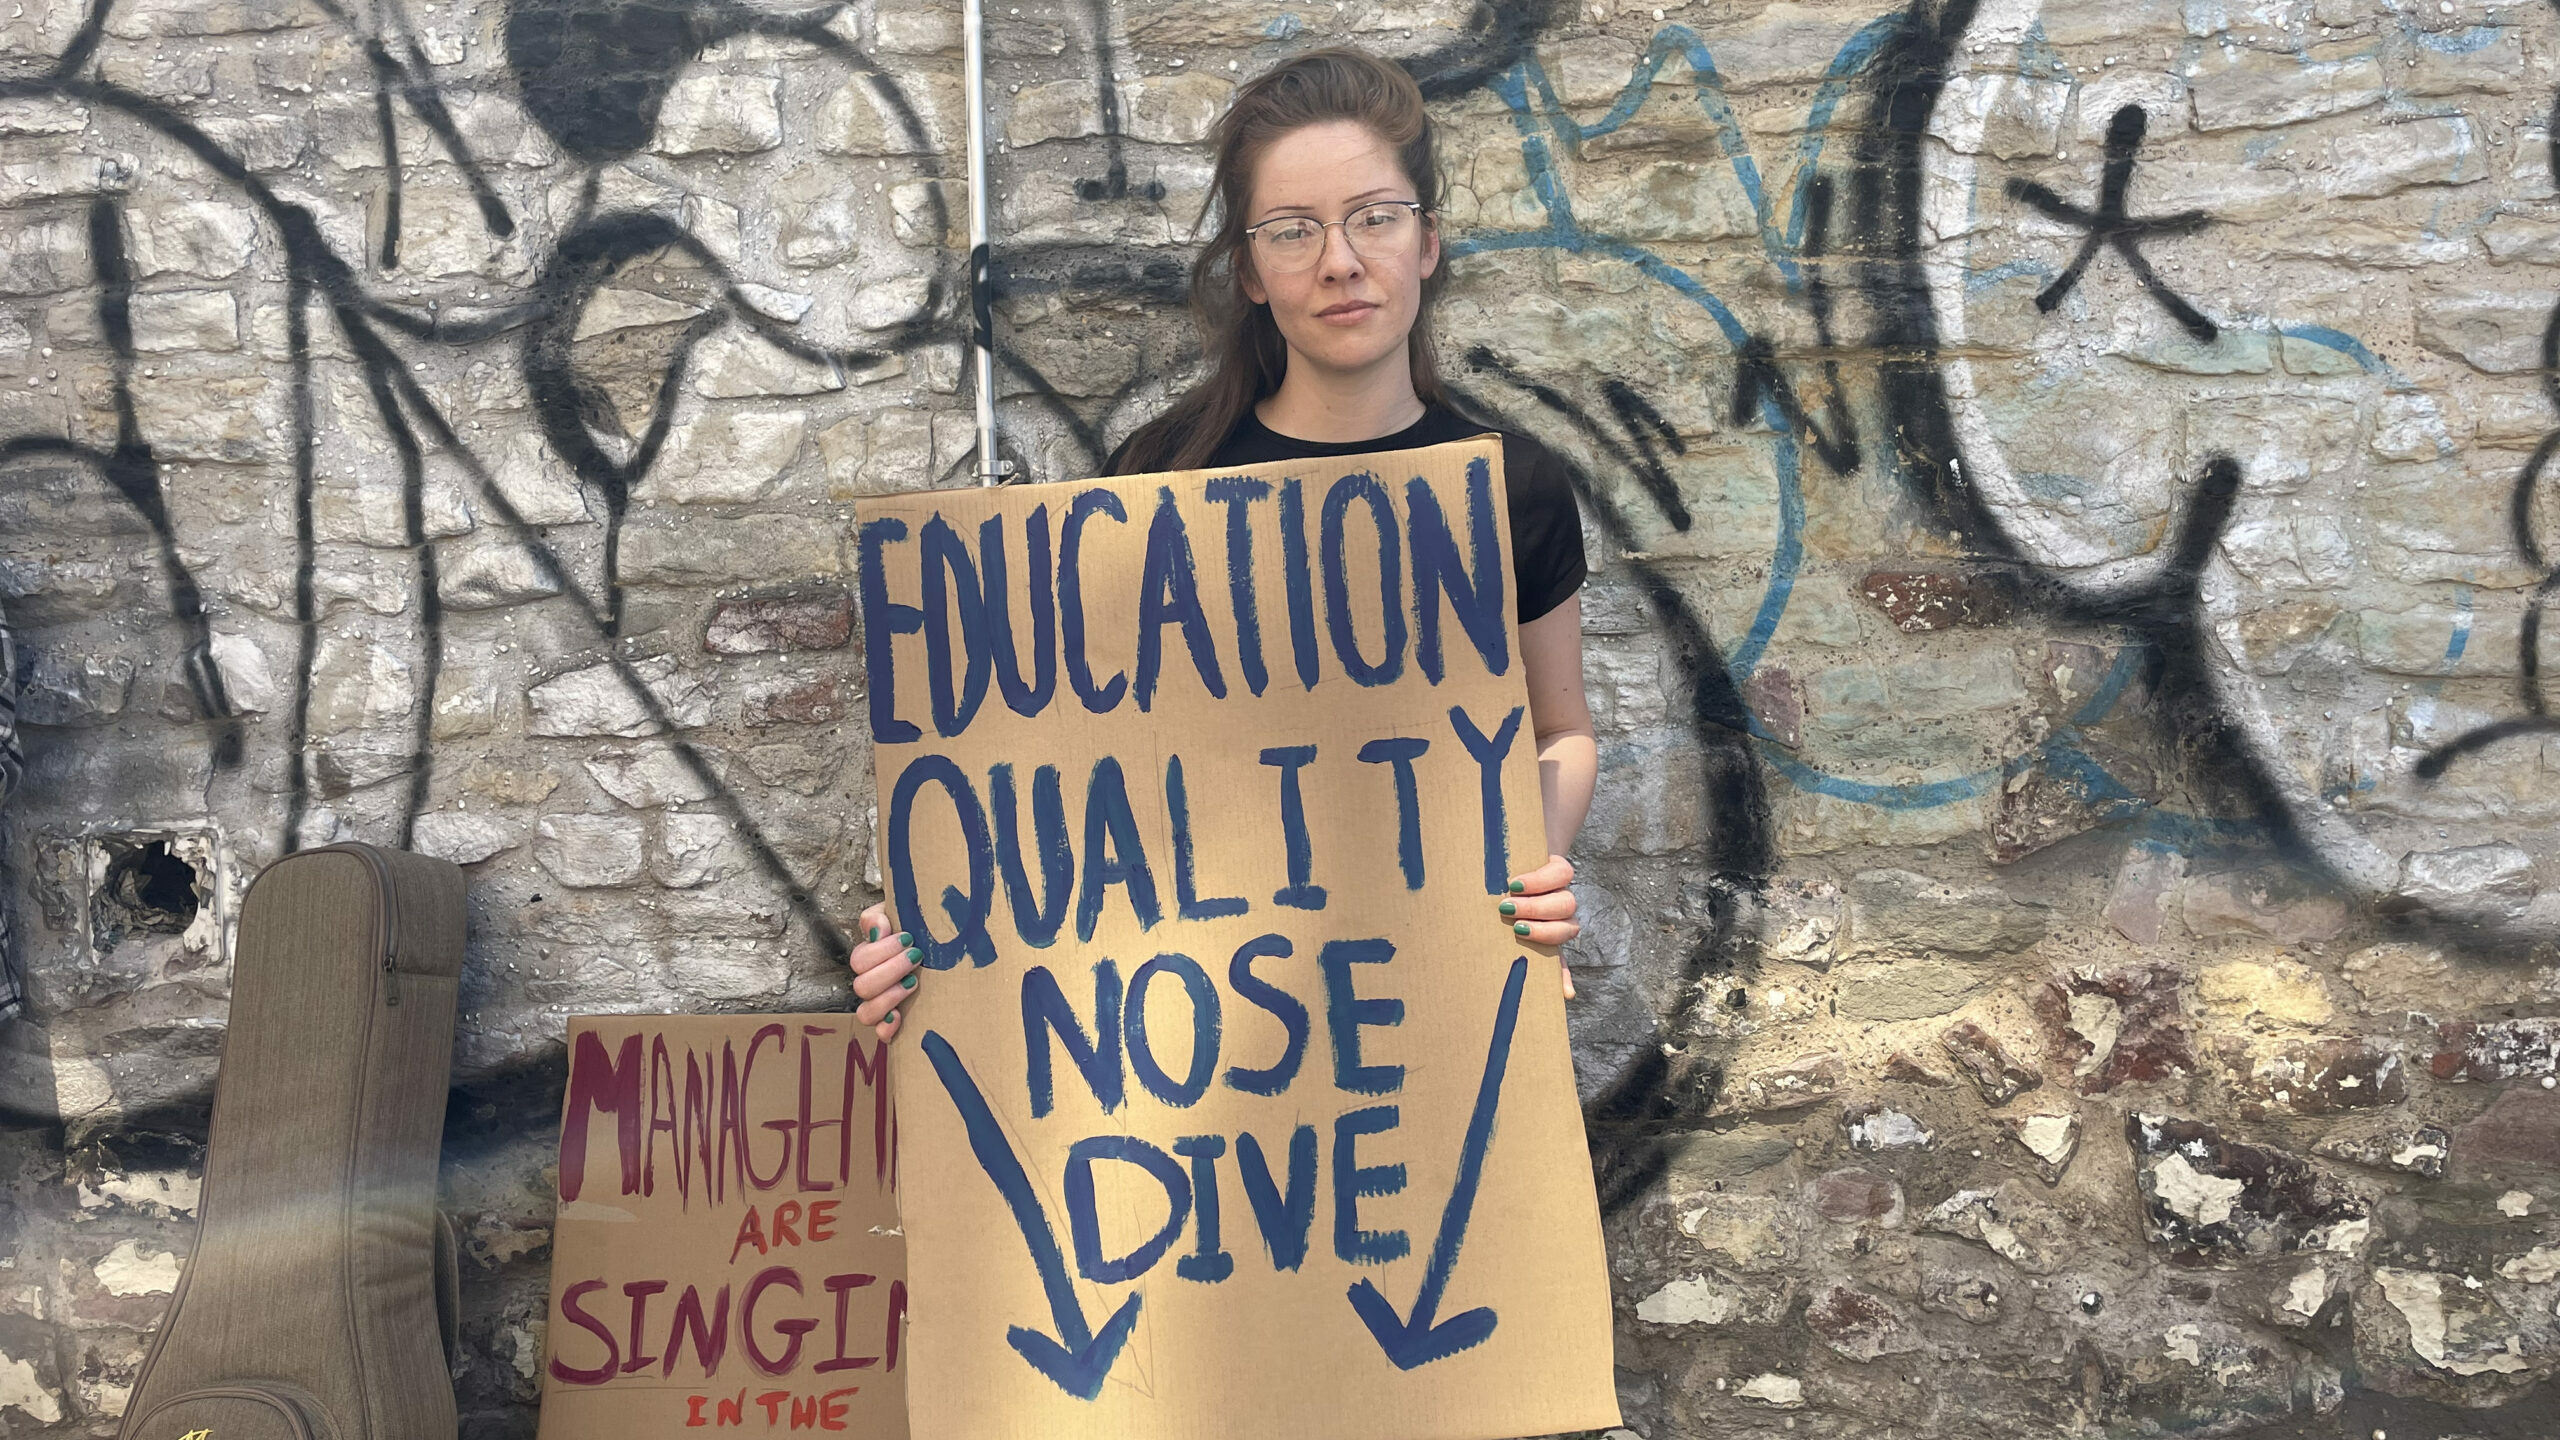 EDUCATION
QUALITY
NOSE
DIVE
MANAGEM
ARE
SINGIN
IN THE